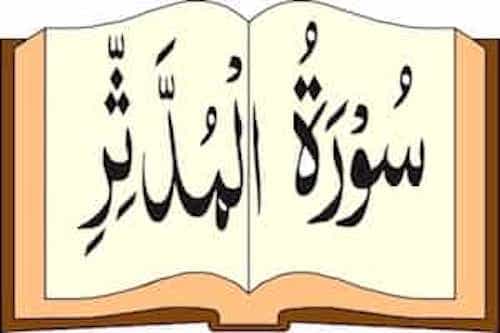 سُوْرَةُ الْمُدَّثِّرِ